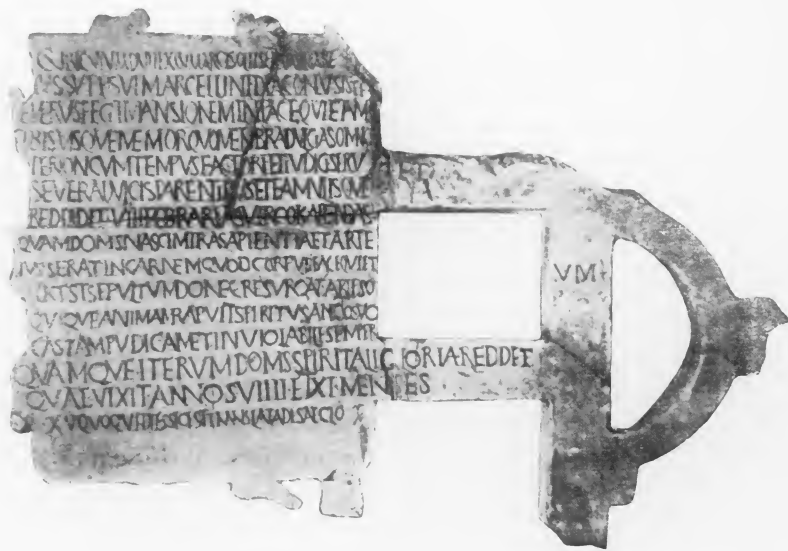 CUIVM DVPLEX CVM ARCISOLIIS ET LVMINARE
IVSSV PP SVI MARCELLINI DIACONVS ISTE
EVERVS FECIT MANSIONEM IN PACE QVIETAM
SIBI SVISQVE MEMOR QVO MEMBRA DVLCIA SOMNO
PER LONCVM TEMPVS FACTORI ET IVDICI SERV
SEVERA DVLCIS PARENTIBVS ET FAMVLISQVE
REDDIDIT VIII FEBRARIAS VIRGO KALENDAS
QVAM DOMS NASCI MIRA SAPIENTIA ET ARTE
IVSSERAT IN CARNEM QVOD CORPVS PACE QVIET VM
EST SEPVLTVM DONEC RESVRGAT AB IPSO
QVIQVE ANIMAM RAPVIT SPIRITV SANCO SVO
CASTAM PVDICAM ET INVIOLABILE SEMPER
QVAMQVE ITERVM DOMS SPIRITALI GLORIA REDDET
QVAE VIXIT ANNOS VIIII ET XI MENSES
XV QVOQVE DIES SIC EST TRANSLATA DE SAECLO